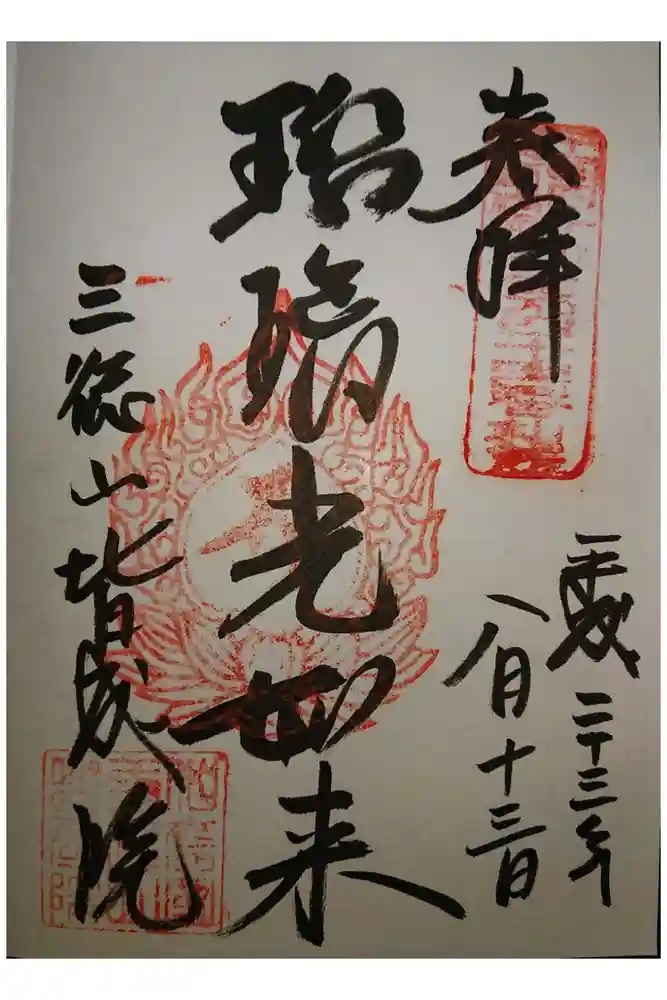 奉拝
平成二十三年
八月十三日
瑠璃光如来
三徳山皆成院